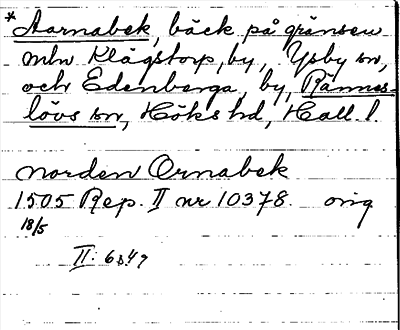 *Aarnabek, bäck på gränsen
mln Klägstorp, by, Ysby sn,
och Edenberga, by, Rännes-
lövs sn, Höks hd, Hall. l.
norden Ornabek
1505 Rep. II nr 10378. orig
18/5
II: 6